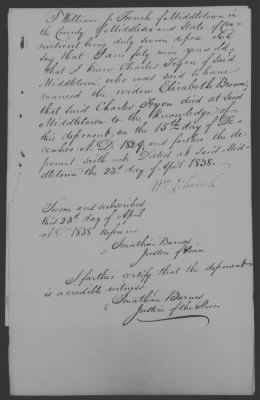 I William J. French of Middletown in
the County of Middlesex and State of Con
necticut being duly sworn depose and
say that I am fifty nine years old
that I knew Charles Tryon of said
Middletown who was said to have
married the widow Elizabeth Brown,
that said Charles Tryon died at said
Middletown to the knowledge of
this deponent, on the 15th day of De
cember A.D. 1829, and further the de
ponent saith not. Dated at said Mid
dletown the 23d day of April 1838.
Wm J. French
Sworn and subscribed
this 23d day of April
A.D. 1838 before me
Jonathan Barnes
Justice of Peace
I further certify that the deponent
is a credible witness
Jonathan Barnes
Justice of the Peace